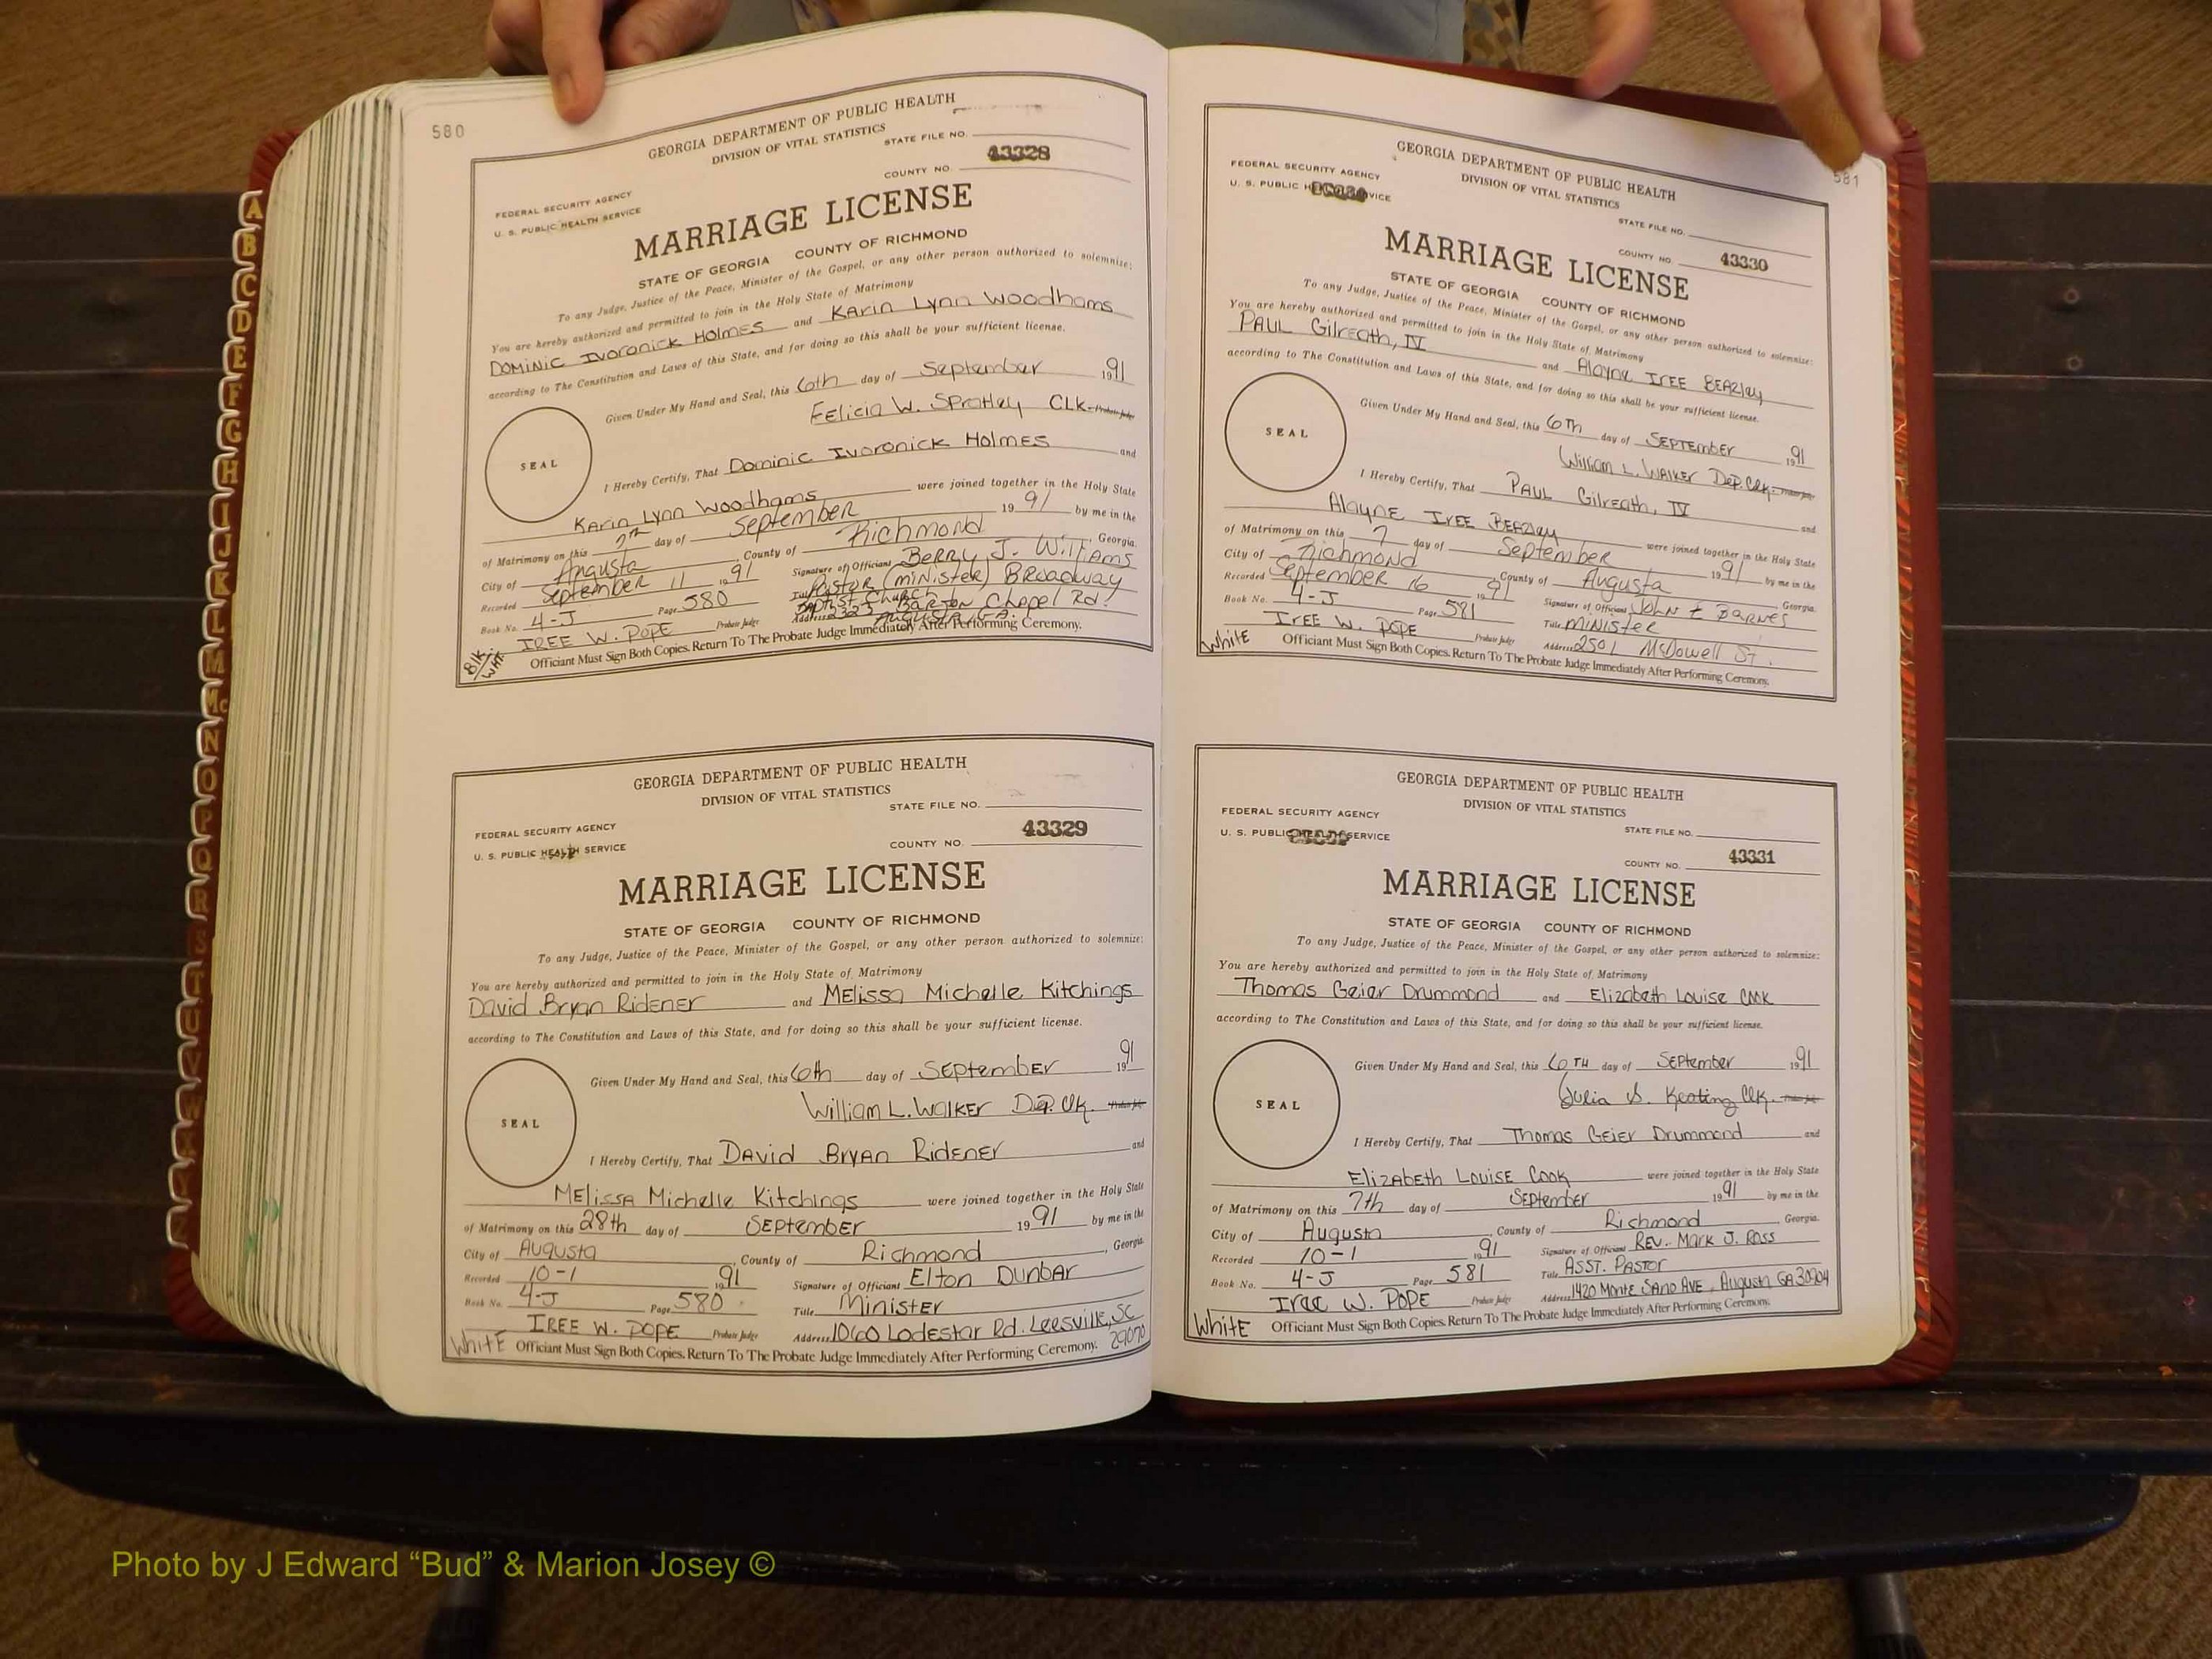 580
GEORGIA DEPARTMENT OF PUBLIC HEALTH
DIVISION OF VITAL STATISTICS
STATE FILE NO.
FEDERAL SECURITY AGENCY
U. S. PUBLIC HEALTH SERVICE
COUNTY NO. 43328
MARRIAGE LICENSE
STATE OF GEORGIA COUNTY OF RICHMOND
To any Judge, Justice of the Peace, Minister of the Gospel, or any other person authorized to solemnize:
You are hereby authorized and permitted to join in the Holy State of Matrimony
DOMINIC Ivoronick HOLMES and KARIN Lynn Woodhams
according to The Constitution and Laws of this State, and for doing so this shall be your sufficient license.
Given Under My Hand and Seal, this 6th day of September 1991
Felicia W. Spratley CLK Probate Judge
SEAL
I Hereby Certify, That Dominic Ivoronick Holmes and
Karin Lynn Woodhams were joined together in the Holy State
of Matrimony on this 7th day of September 1991 by me in the
City of Augusta, County of Richmond, Georgia.
Recorded September 11 1991 Signature of Officiant Berry J. Williams
Book No. 4-J Page 580 Title Pastor (minister) Broadway
Baptist Church
IREE W. POPE Probate Judge Address 2323 Barton Chapel Rd.
Augusta GA.
Blk/Wht. Officiant Must Sign Both Copies. Return To The Probate Judge Immediately After Performing Ceremony.
GEORGIA DEPARTMENT OF PUBLIC HEALTH
DIVISION OF VITAL STATISTICS
STATE FILE NO.
FEDERAL SECURITY AGENCY
U. S. PUBLIC HEALTH SERVICE
COUNTY NO. 43329
MARRIAGE LICENSE
STATE OF GEORGIA COUNTY OF RICHMOND
To any Judge, Justice of the Peace, Minister of the Gospel, or any other person authorized to solemnize:
You are hereby authorized and permitted to join in the Holy State of Matrimony
David Bryan Ridener and MElissa Michelle Kitchings
according to The Constitution and Laws of this State, and for doing so this shall be your sufficient license.
Given Under My Hand and Seal, this 6th day of SEptembEr 1991
William L. WalkEr Dep. Clk. Probate Judge
SEAL
I Hereby Certify, That David Bryan Ridener and
MElissa Michelle Kitchings were joined together in the Holy State
of Matrimony on this 28th day of SEptembEr 1991 by me in the
City of Augusta, County of Richmond, Georgia.
Recorded 10-1 1991 Signature of Officiant Elton Dunbar
Book No. 4-J Page 580 Title Minister
IREE W. POPE Probate Judge Address 1060 Lodestar Rd. Leesville, SC
29070
WhitE Officiant Must Sign Both Copies. Return To The Probate Judge Immediately After Performing Ceremony.
581
GEORGIA DEPARTMENT OF PUBLIC HEALTH
DIVISION OF VITAL STATISTICS
STATE FILE NO.
FEDERAL SECURITY AGENCY
U. S. PUBLIC SERVICE
COUNTY NO. 43330
MARRIAGE LICENSE
STATE OF GEORGIA COUNTY OF RICHMOND
To any Judge, Justice of the Peace, Minister of the Gospel, or any other person authorized to solemnize:
You are hereby authorized and permitted to join in the Holy State of Matrimony
PAUL Gilreath, IV and Alayne IREE BEAZley
according to The Constitution and Laws of this State, and for doing so this shall be your sufficient license.
Given Under My Hand and Seal, this 6Th day of SEPTEMbEr 1991
William L. WAlKER Dep. Clk. Probate Judge
SEAL
I Hereby Certify, That PAUL Gilreath, IV and
Alayne IREE BEAZley were joined together in the Holy State
of Matrimony on this 7 day of September 1991 by me in the
City of Richmond County of Augusta Georgia.
Recorded September 16 1991 Signature of Officiant John E Barnes
Book No. 4-J Page 581 Title Minister
IREE W. POPE Probate Judge Address 2501 McDowell St.
WhitE Officiant Must Sign Both Copies. Return To The Probate Judge Immediately After Performing Ceremony.
GEORGIA DEPARTMENT OF PUBLIC HEALTH
DIVISION OF VITAL STATISTICS
STATE FILE NO.
FEDERAL SECURITY AGENCY
U. S. PUBLIC HEALTH SERVICE
COUNTY NO. 43331
MARRIAGE LICENSE
STATE OF GEORGIA COUNTY OF RICHMOND
To any Judge, Justice of the Peace, Minister of the Gospel, or any other person authorized to solemnize:
You are hereby authorized and permitted to join in the Holy State of Matrimony
Thomas Geier Drummond and Elizabeth Louise Cook
according to The Constitution and Laws of this State, and for doing so this shall be your sufficient license.
Given Under My Hand and Seal, this 6TH day of September 1991
Julia S. Keating Clk. Probate Judge
SEAL
I Hereby Certify, That Thomas Geier Drummond and
Elizabeth Louise Cook were joined together in the Holy State
of Matrimony on this 7th day of September 1991 by me in the
City of Augusta, County of Richmond Georgia.
Recorded 10-1 1991 Signature of Officiant REV. Mark J. Ross
Book No. 4-J Page 581 Title ASST. PASTOR
Iree W. POPE Probate Judge Address 1420 Monte Sano AVE, Augusta GA 30904
WhitE Officiant Must Sign Both Copies. Return To The Probate Judge Immediately After Performing Ceremony.
A
B
C
D
E
F
G
H
I
J
K
L
M
Mc
N
O
P
Q
R
S
T
U
V
W
Photo by J Edward “Bud” & Marion Josey ©